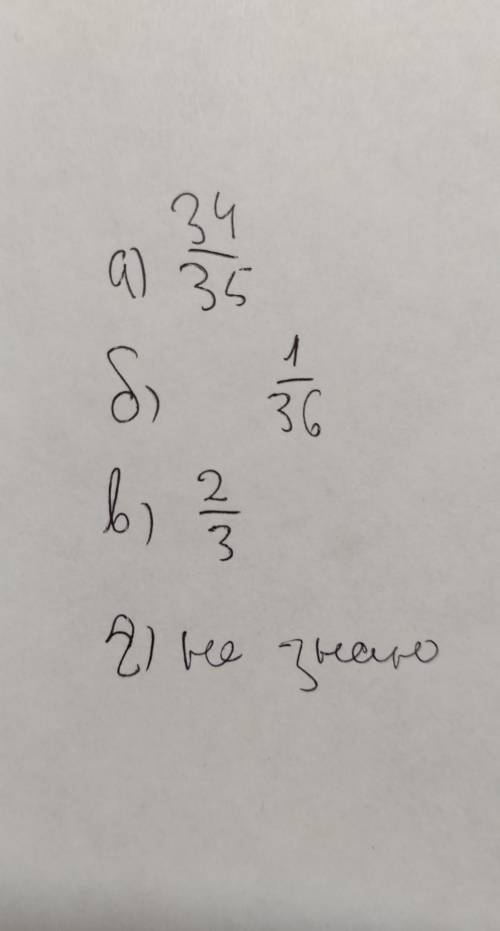 а) 34/35
б) 1/36
в) 2/3
г) не знаю